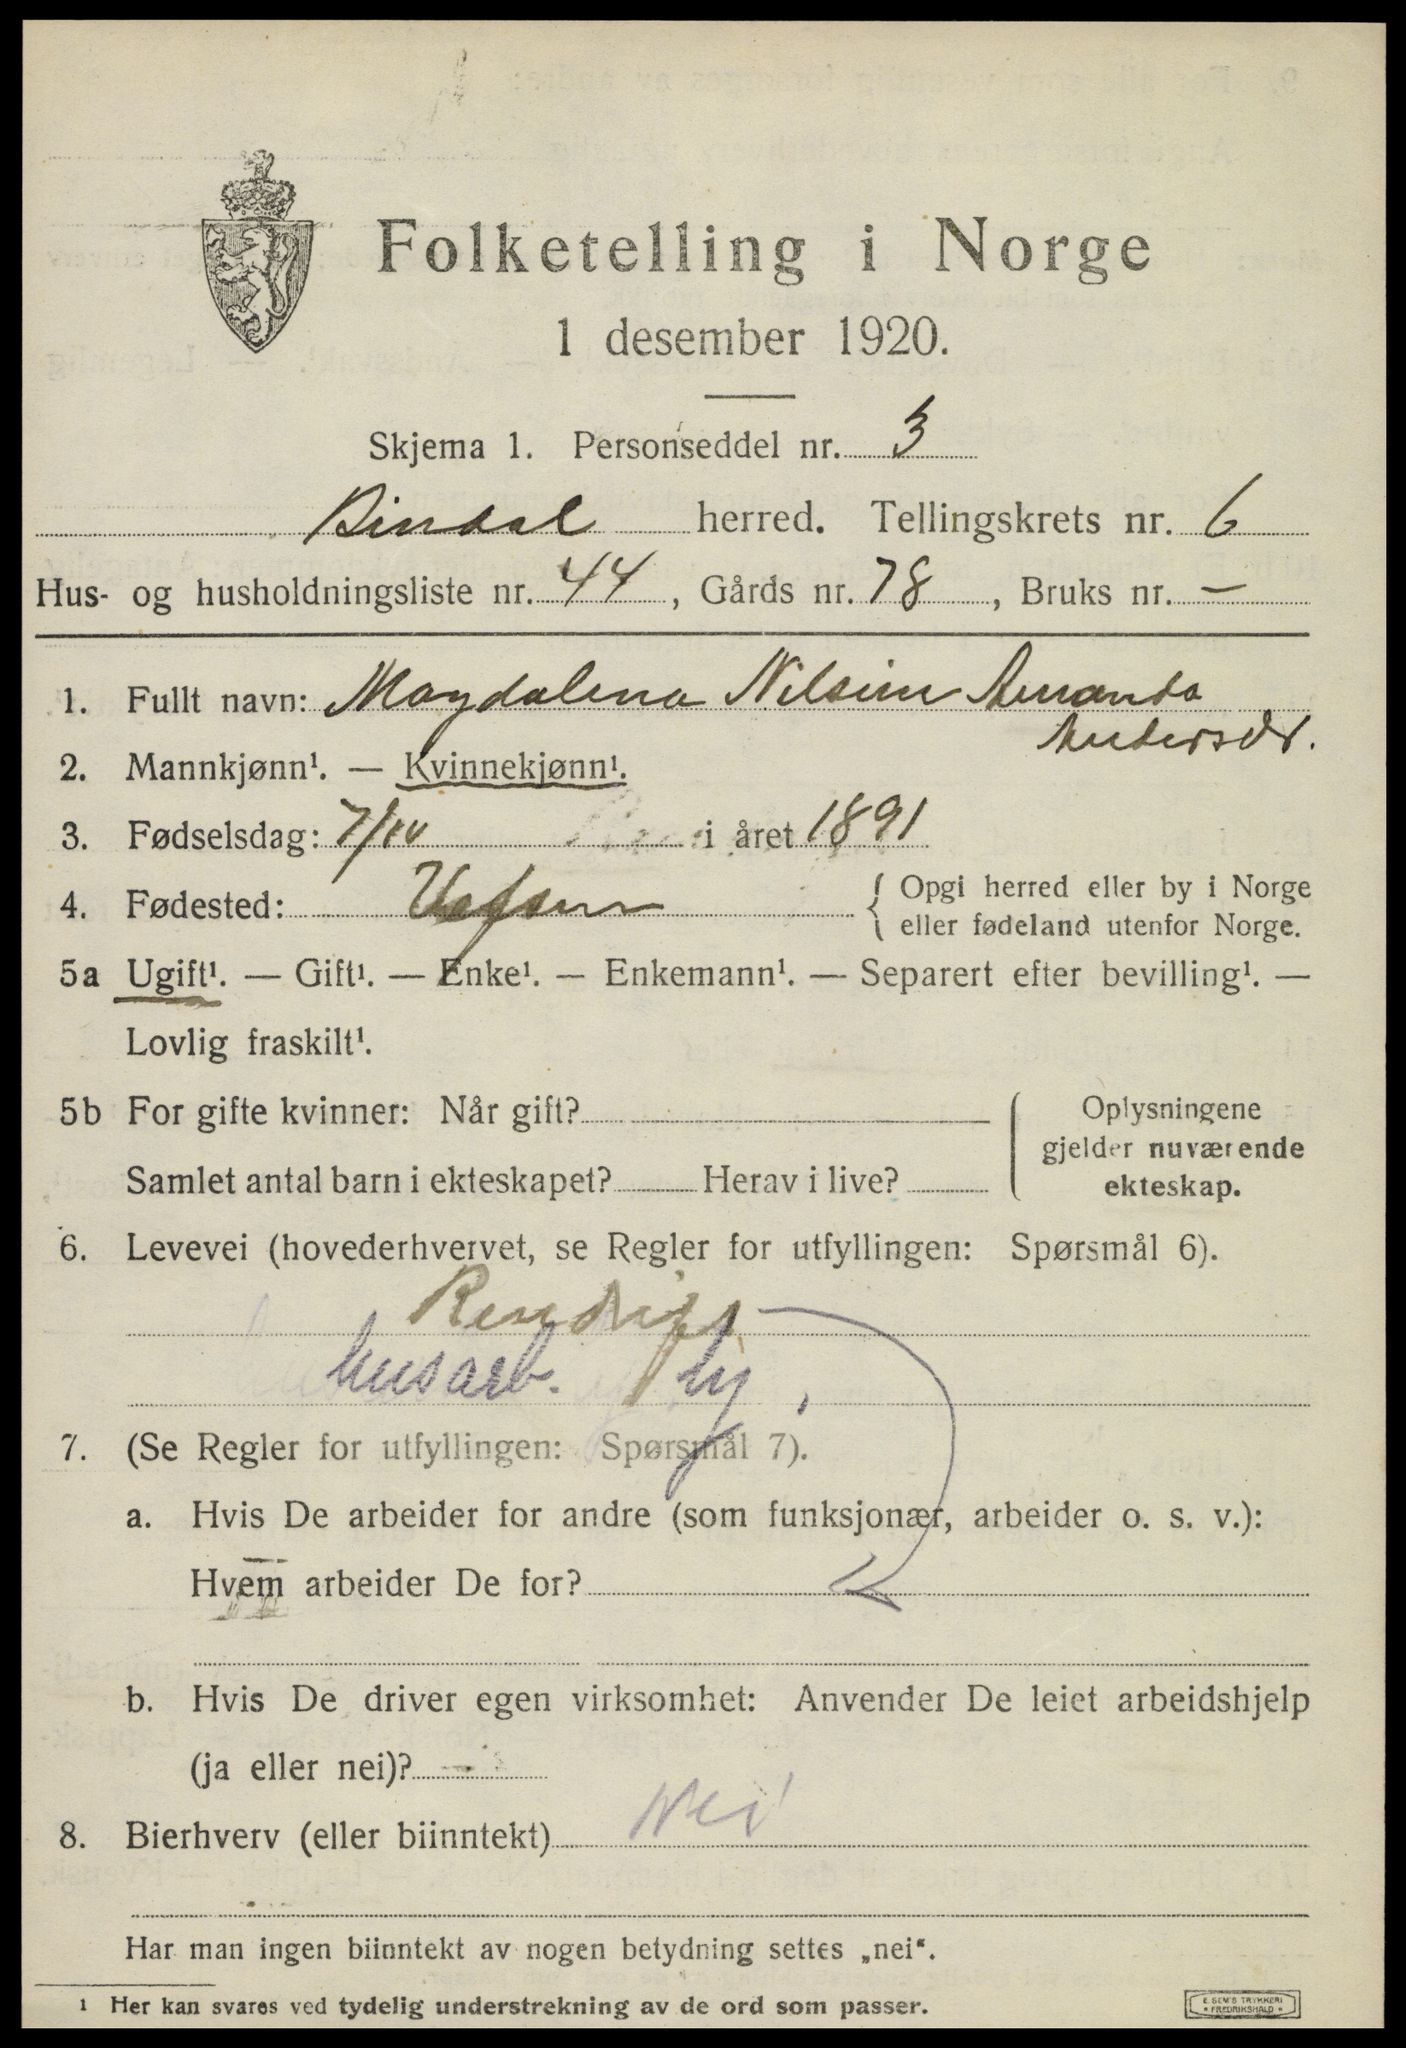 Folketelling i Norge
1 desember 1920.
Skjema 1. Personseddel nr. 3
Bindal herred. Tellingskrets nr. 6
Hus- og husholdningsliste nr. 44, Gårds nr. 78, Bruks nr. —
1. Fullt navn: Magdalena Nilsine Amanda
Andersdr.
2. Mannkjønn¹. — Kvinnekjønn¹.
3. Fødselsdag: 7/10 i året 1891
4. Fødested: Vefsen { Opgi herred eller by i Norge
eller fødeland utenfor Norge.
5a Ugift¹. — Gift¹. — Enke¹. — Enkemann¹. — Separert efter bevilling¹. —
Lovlig fraskilt¹.
5b For gifte kvinner: Når gift? Oplysningene
gjelder nuværende
Samlet antal barn i ekteskapet? Herav i live? ekteskap.
6. Levevei (hovederhvervet, se Regler for utfyllingen: Spørsmål 6).
Rendrift
husarb.
7. (Se Regler for utfyllingen: Spørsmål 7).
a. Hvis De arbeider for andre (som funksjonær, arbeider o. s. v.):
Hvem arbeider De for?
b. Hvis De driver egen virksomhet: Anvender De leiet arbeidshjelp
(ja eller nei)? —
8. Bierhverv (eller biinntekt) Nei
Har man ingen biinntekt av nogen betydning settes „nei“.
¹ Her kan svares ved tydelig understrekning av de ord som passer.
E. SEM'S TRYKKERI
• FREDRIKSHALD •